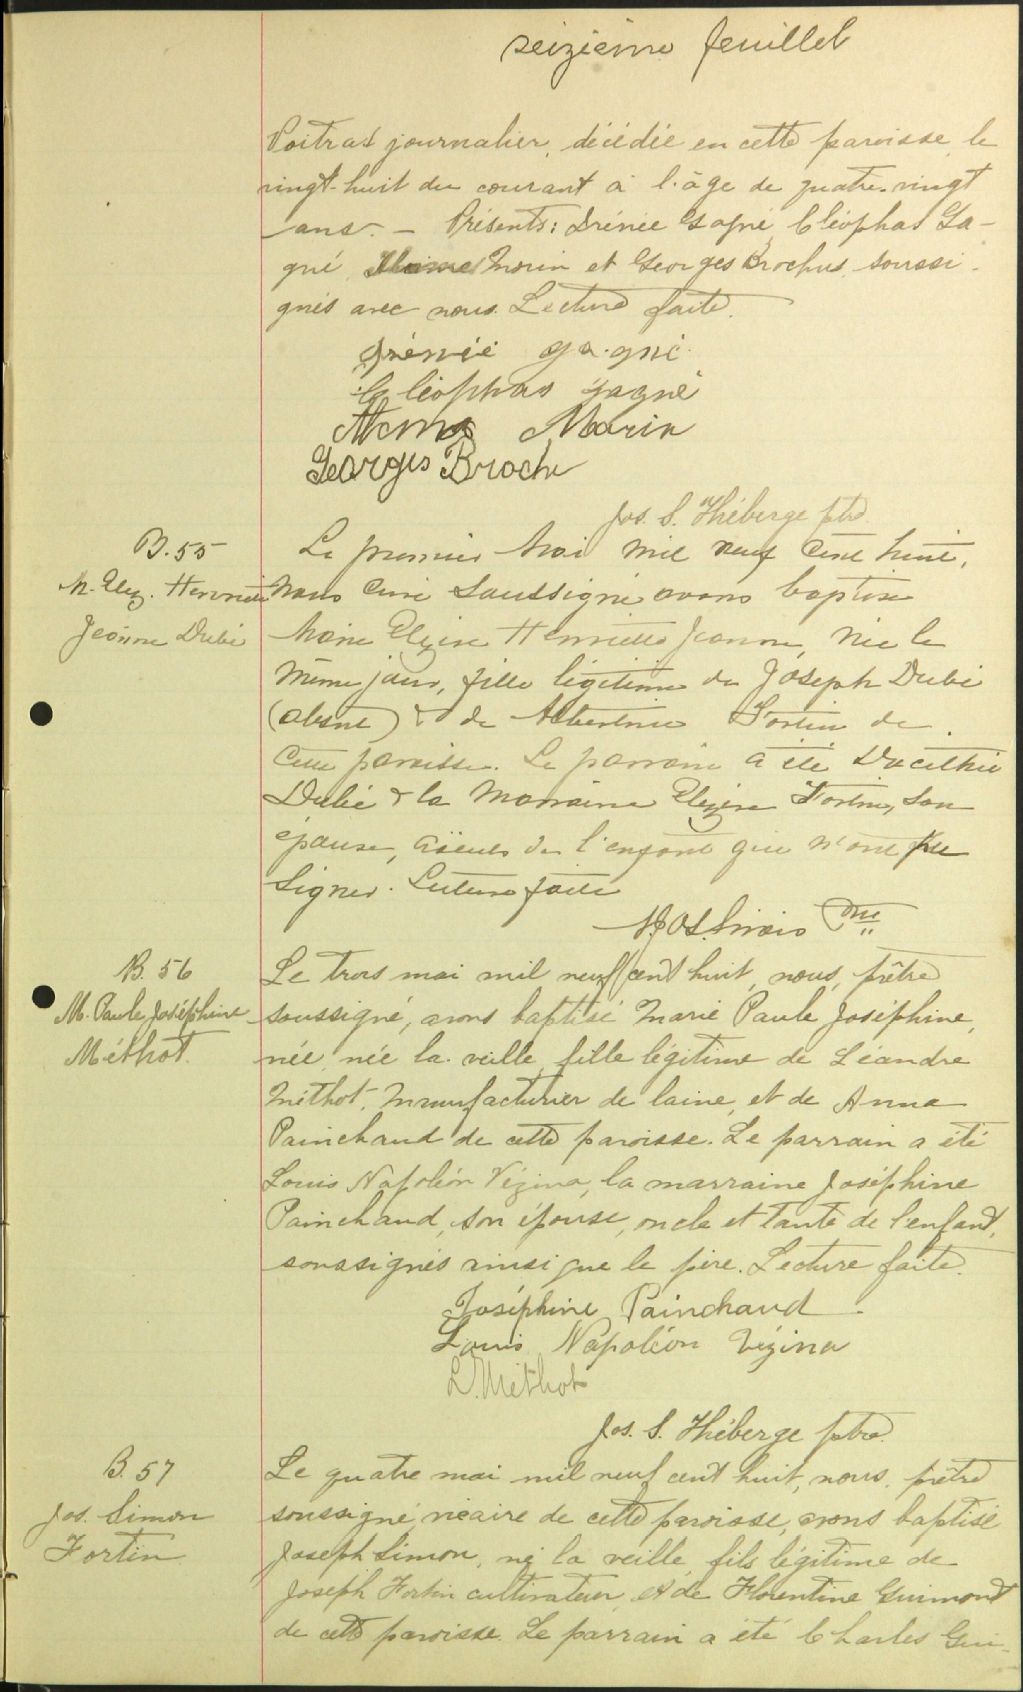 seizième feuillet
Poitras journalier, décédée en cette paroisse, le
vingt-huit du courant à l'âge de quatre-vingt
ans. - Présents: Irénée Gagné, Cléophas Ga-
gné, Morin et Georges Brochu, soussi-
gnés avec nous. Lecture faite.
Irénée gagné
Cléophas gagné
Morin
Georges Brochu
Jos. S. Théberge ptre
B. 55
M. Elez. Henriette
Jeanne Dubé
Le premier Mai mil neuf cent huit,
Nous curé soussigné avons baptisé
Marie Elezire Henriette Jeanne, née le
même jour, fille légitime de Joseph Dubé
(absent) & de Albertine Fortin de
cette paroisse. Le parrain a été
Dubé & la Marraine Elezire Fortin, son
épouse, aïeuls de l'enfant qui n'ont pu
signer. Lecture faite
B. 56
M. Paule Joséphine
Méthot.
Le trois mai mil neuf cent huit, nous, prêtre
soussigné, avons baptisé Marie Paule Joséphine,
née, née la veille, fille légitime de Léandre
Méthot, Manufacturier de laine, et de Anna
Painchaud de cette paroisse. Le parrain a été
Louis Napoléon Vézina, la marraine Joséphine
Painchaud, son épouse, oncle et tante de l'enfant,
soussignés ainsi que le père. Lecture faite.
Joséphine Painchaud
Louis Napoléon Vézina
L. Méthot
Jos. S. Théberge ptre.
B. 57
Jos. Simon
Fortin
Le quatre mai mil neuf cent huit, nous, prêtre
soussigné, vicaire de cette paroisse, avons baptisé
Joseph Simon, né la veille, fils légitime de
Joseph Fortin cultivateur, et de Florentine Guimont
de cette paroisse. Le parrain a été Charles Gui-